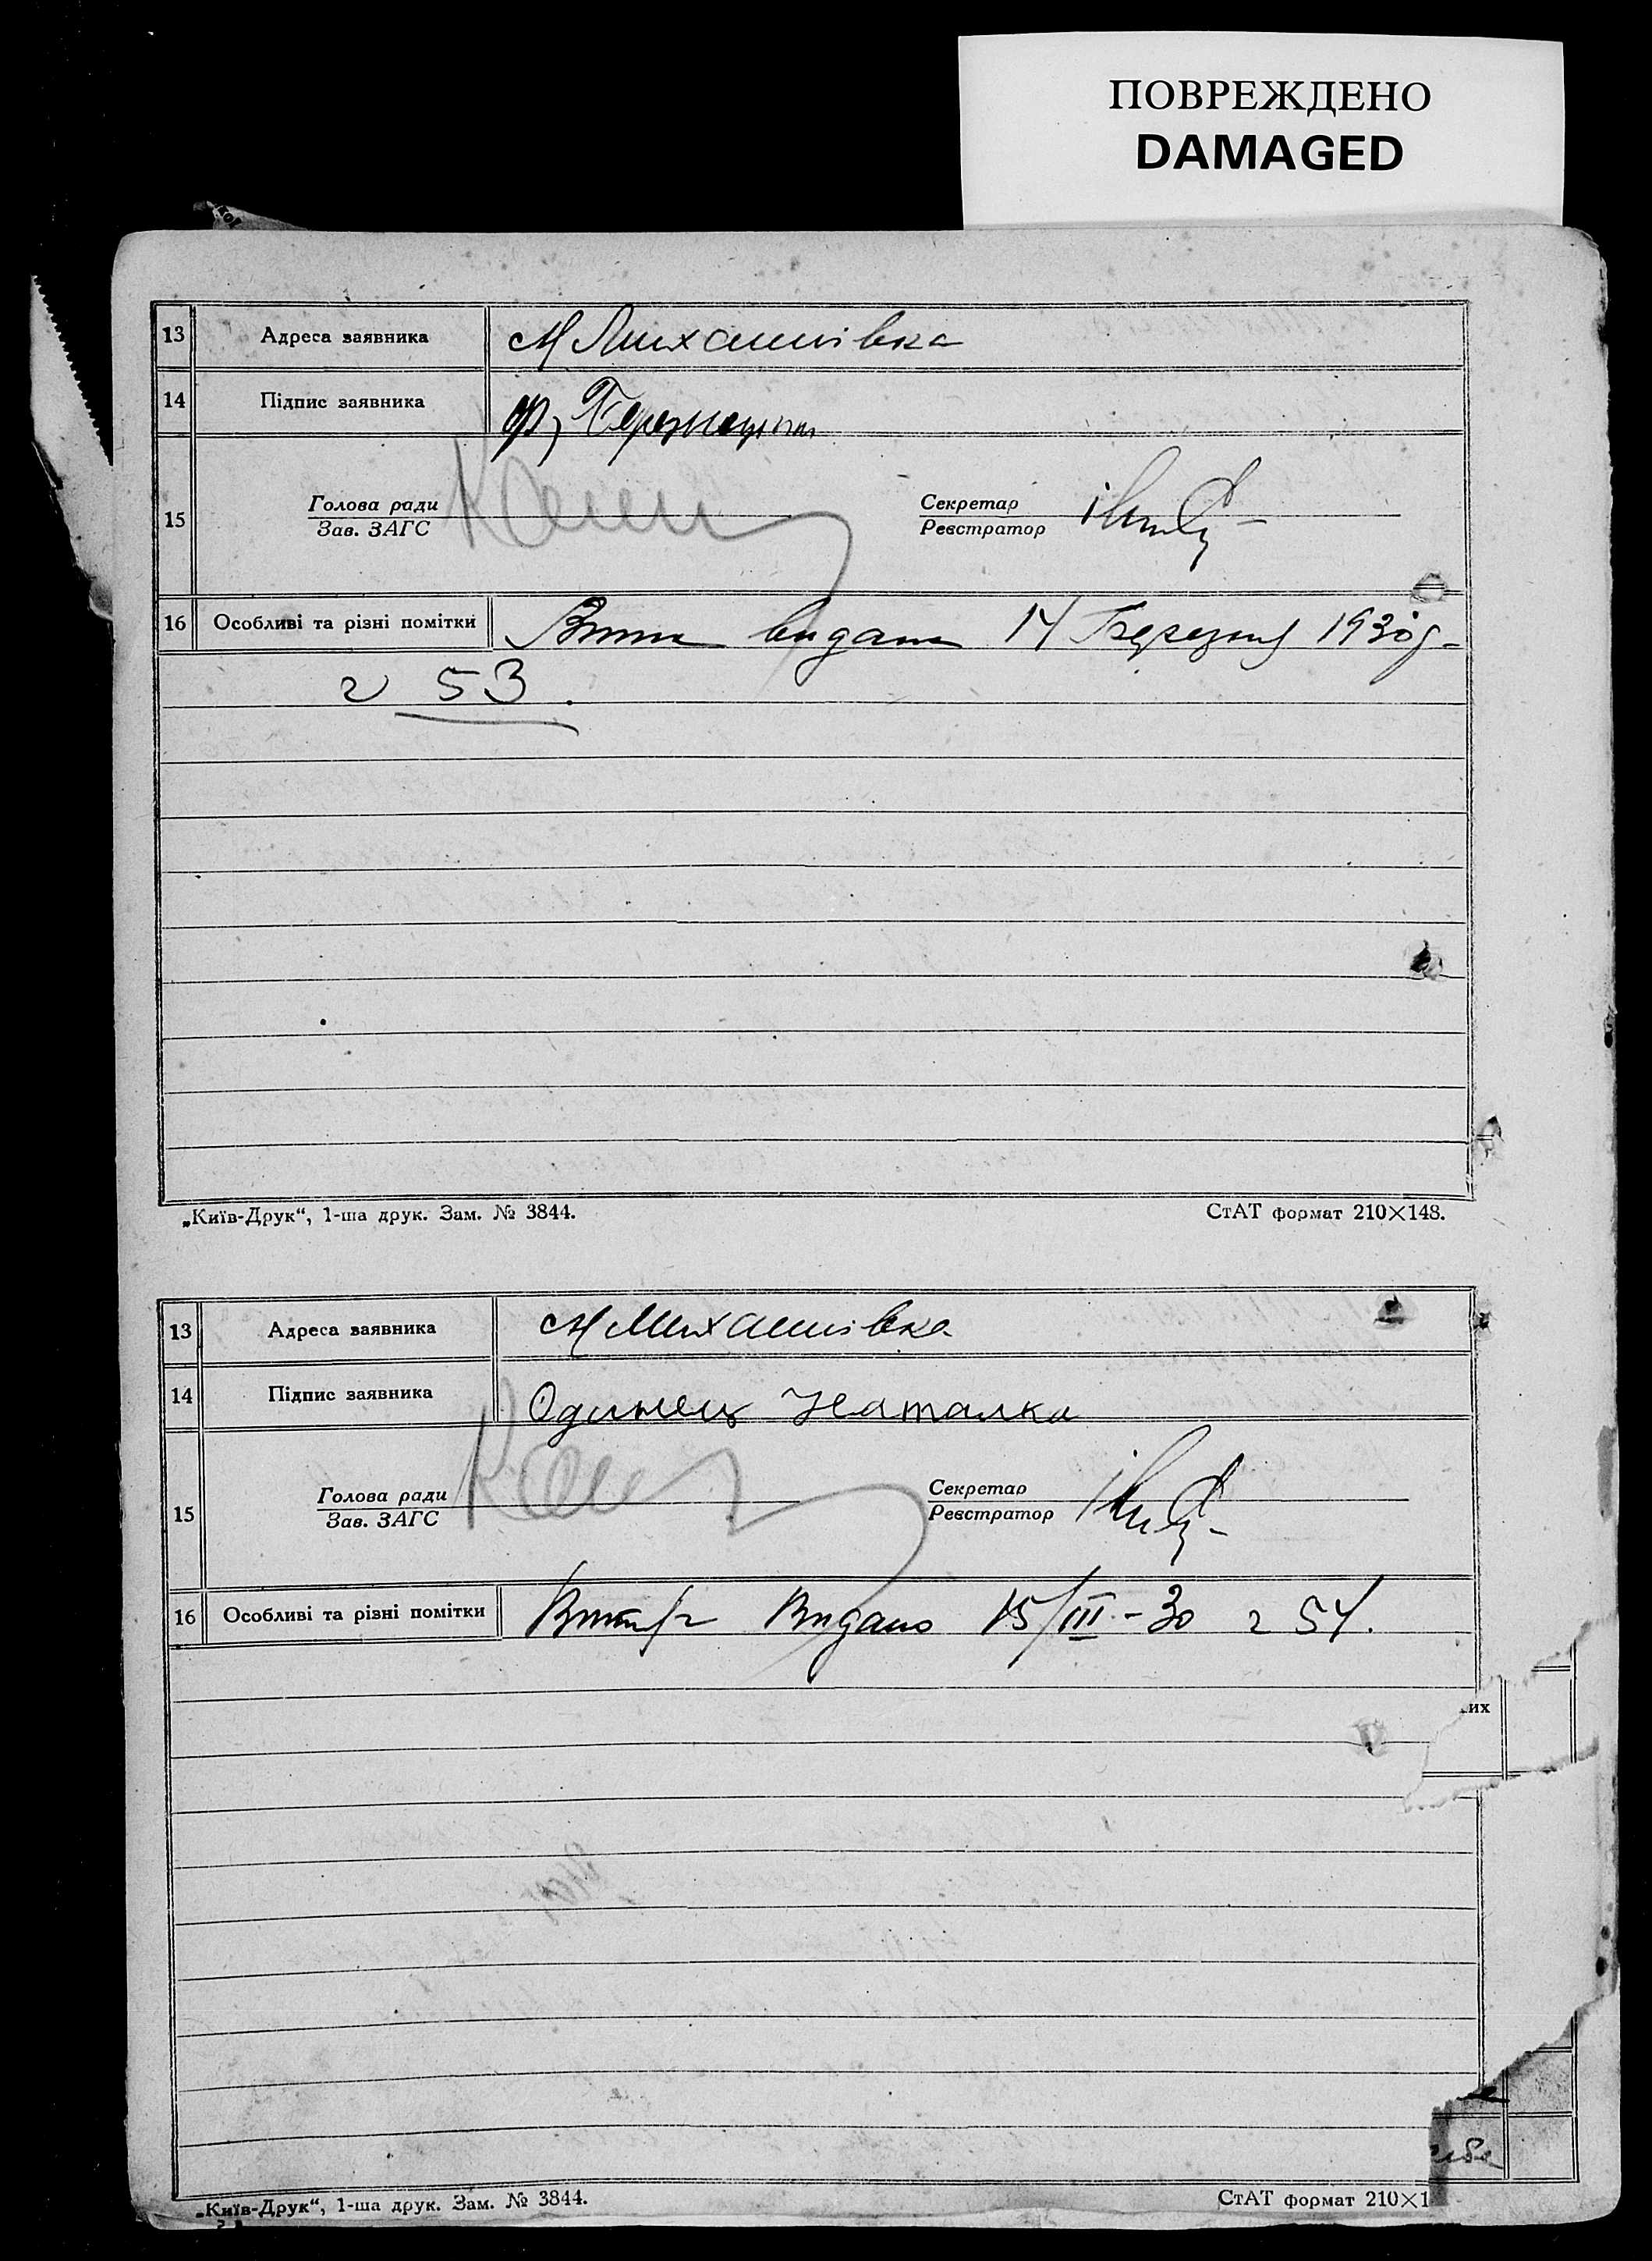 ПОВРЕЖДЕНО
DAMAGED
13 Адреса заявника м Михайлівка
14 Підпис заявника Ф,
Голова ради Секретар
15
Зав. ЗАГС Реєстратор
16 Особливі та різні помітки Витяг видано 14 Березня 1930р-
53.
„Київ-Друк“, 1-ша друк. Зам. № 3844. СтАТ формат 210×148.
13 Адреса заявника м Михайлівка
14 Підпис заявника Одинець Наталка
Голова ради Секретар
15
Зав. ЗАГС Реєстратор
16 Особливі та різні помітки Видано 15/III-30 54.
их
„Київ-Друк“, 1-ша друк. Зам. № 3844. СтАТ формат 210×1